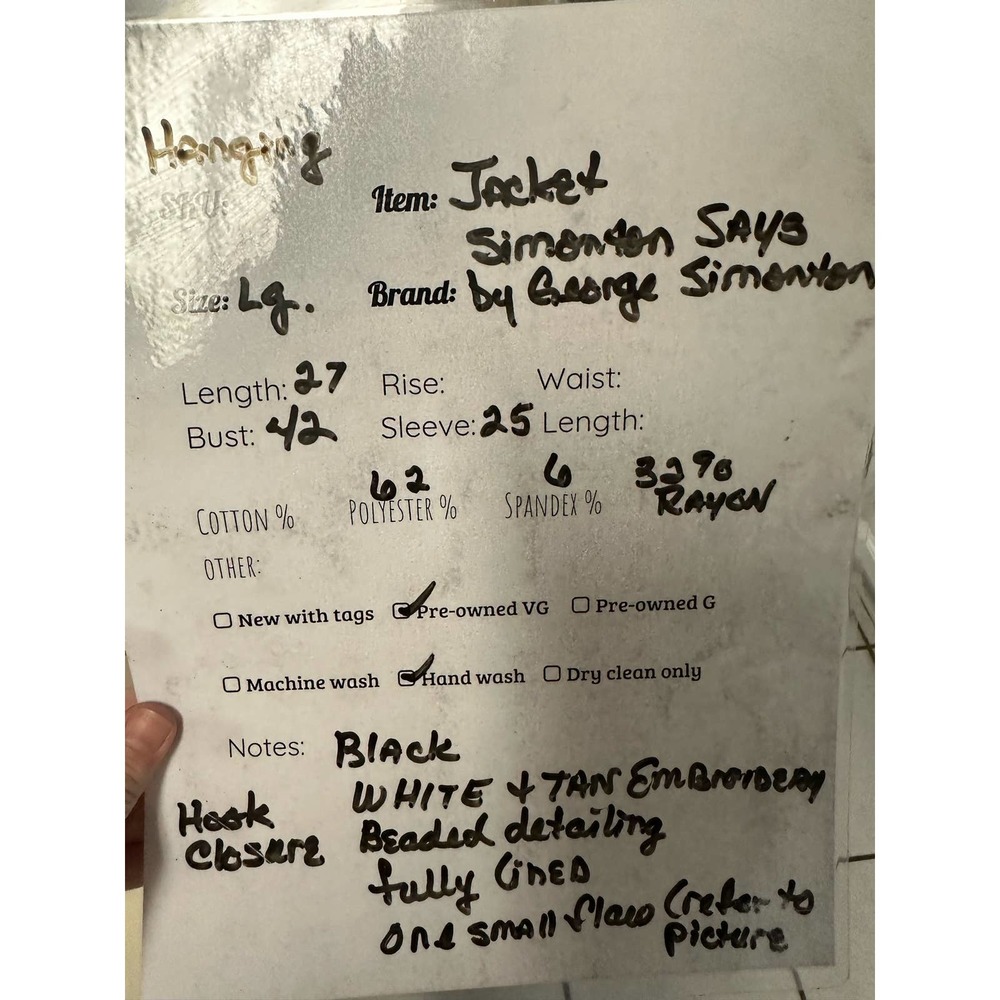 Hanging
SKU:
Item: Jacket
Simonton Says
Size: Lg. Brand: by George Simonton
Length: 27 Rise: Waist:
Bust: 42 Sleeve: 25 Length:
62 6 32%
COTTON % POLYESTER % SPANDEX % RAYON
OTHER:
New with tags Pre-owned VG Pre-owned G
Machine wash Hand wash Dry clean only
Notes: Black
WHITE + TAN EMBROIDERY
Hook Beaded detailing
Closure fully lined
one small flaw (refer to
picture